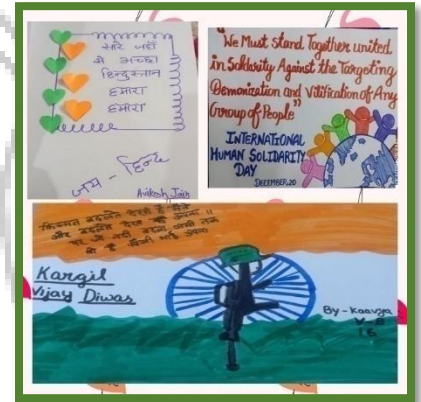 सारे जहाँ
से अच्छा
हिन्दुस्तान
हमारा
हमारा
जय - हिन्द
Avikesh Jain
"We Must stand Together united
in Solidarity Against the Targeting
Demonization and Vilification of Any
Group of People"
INTERNATIONAL
HUMAN SOLIDARITY
DAY
DECEMBER, 20
किस्मत बदलते देखी है मैंने
और बदलते देखा है
Kargil
Vijay Diwas
By - Kaavya
V-B
16